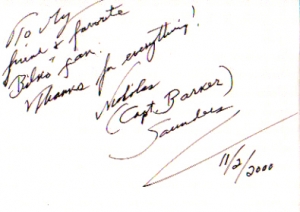 To My
friend & favorite
"Bilko" fan.
Thanks for everything!
Nicholas
(Capt. Barker)
Saunders
11/2/2000